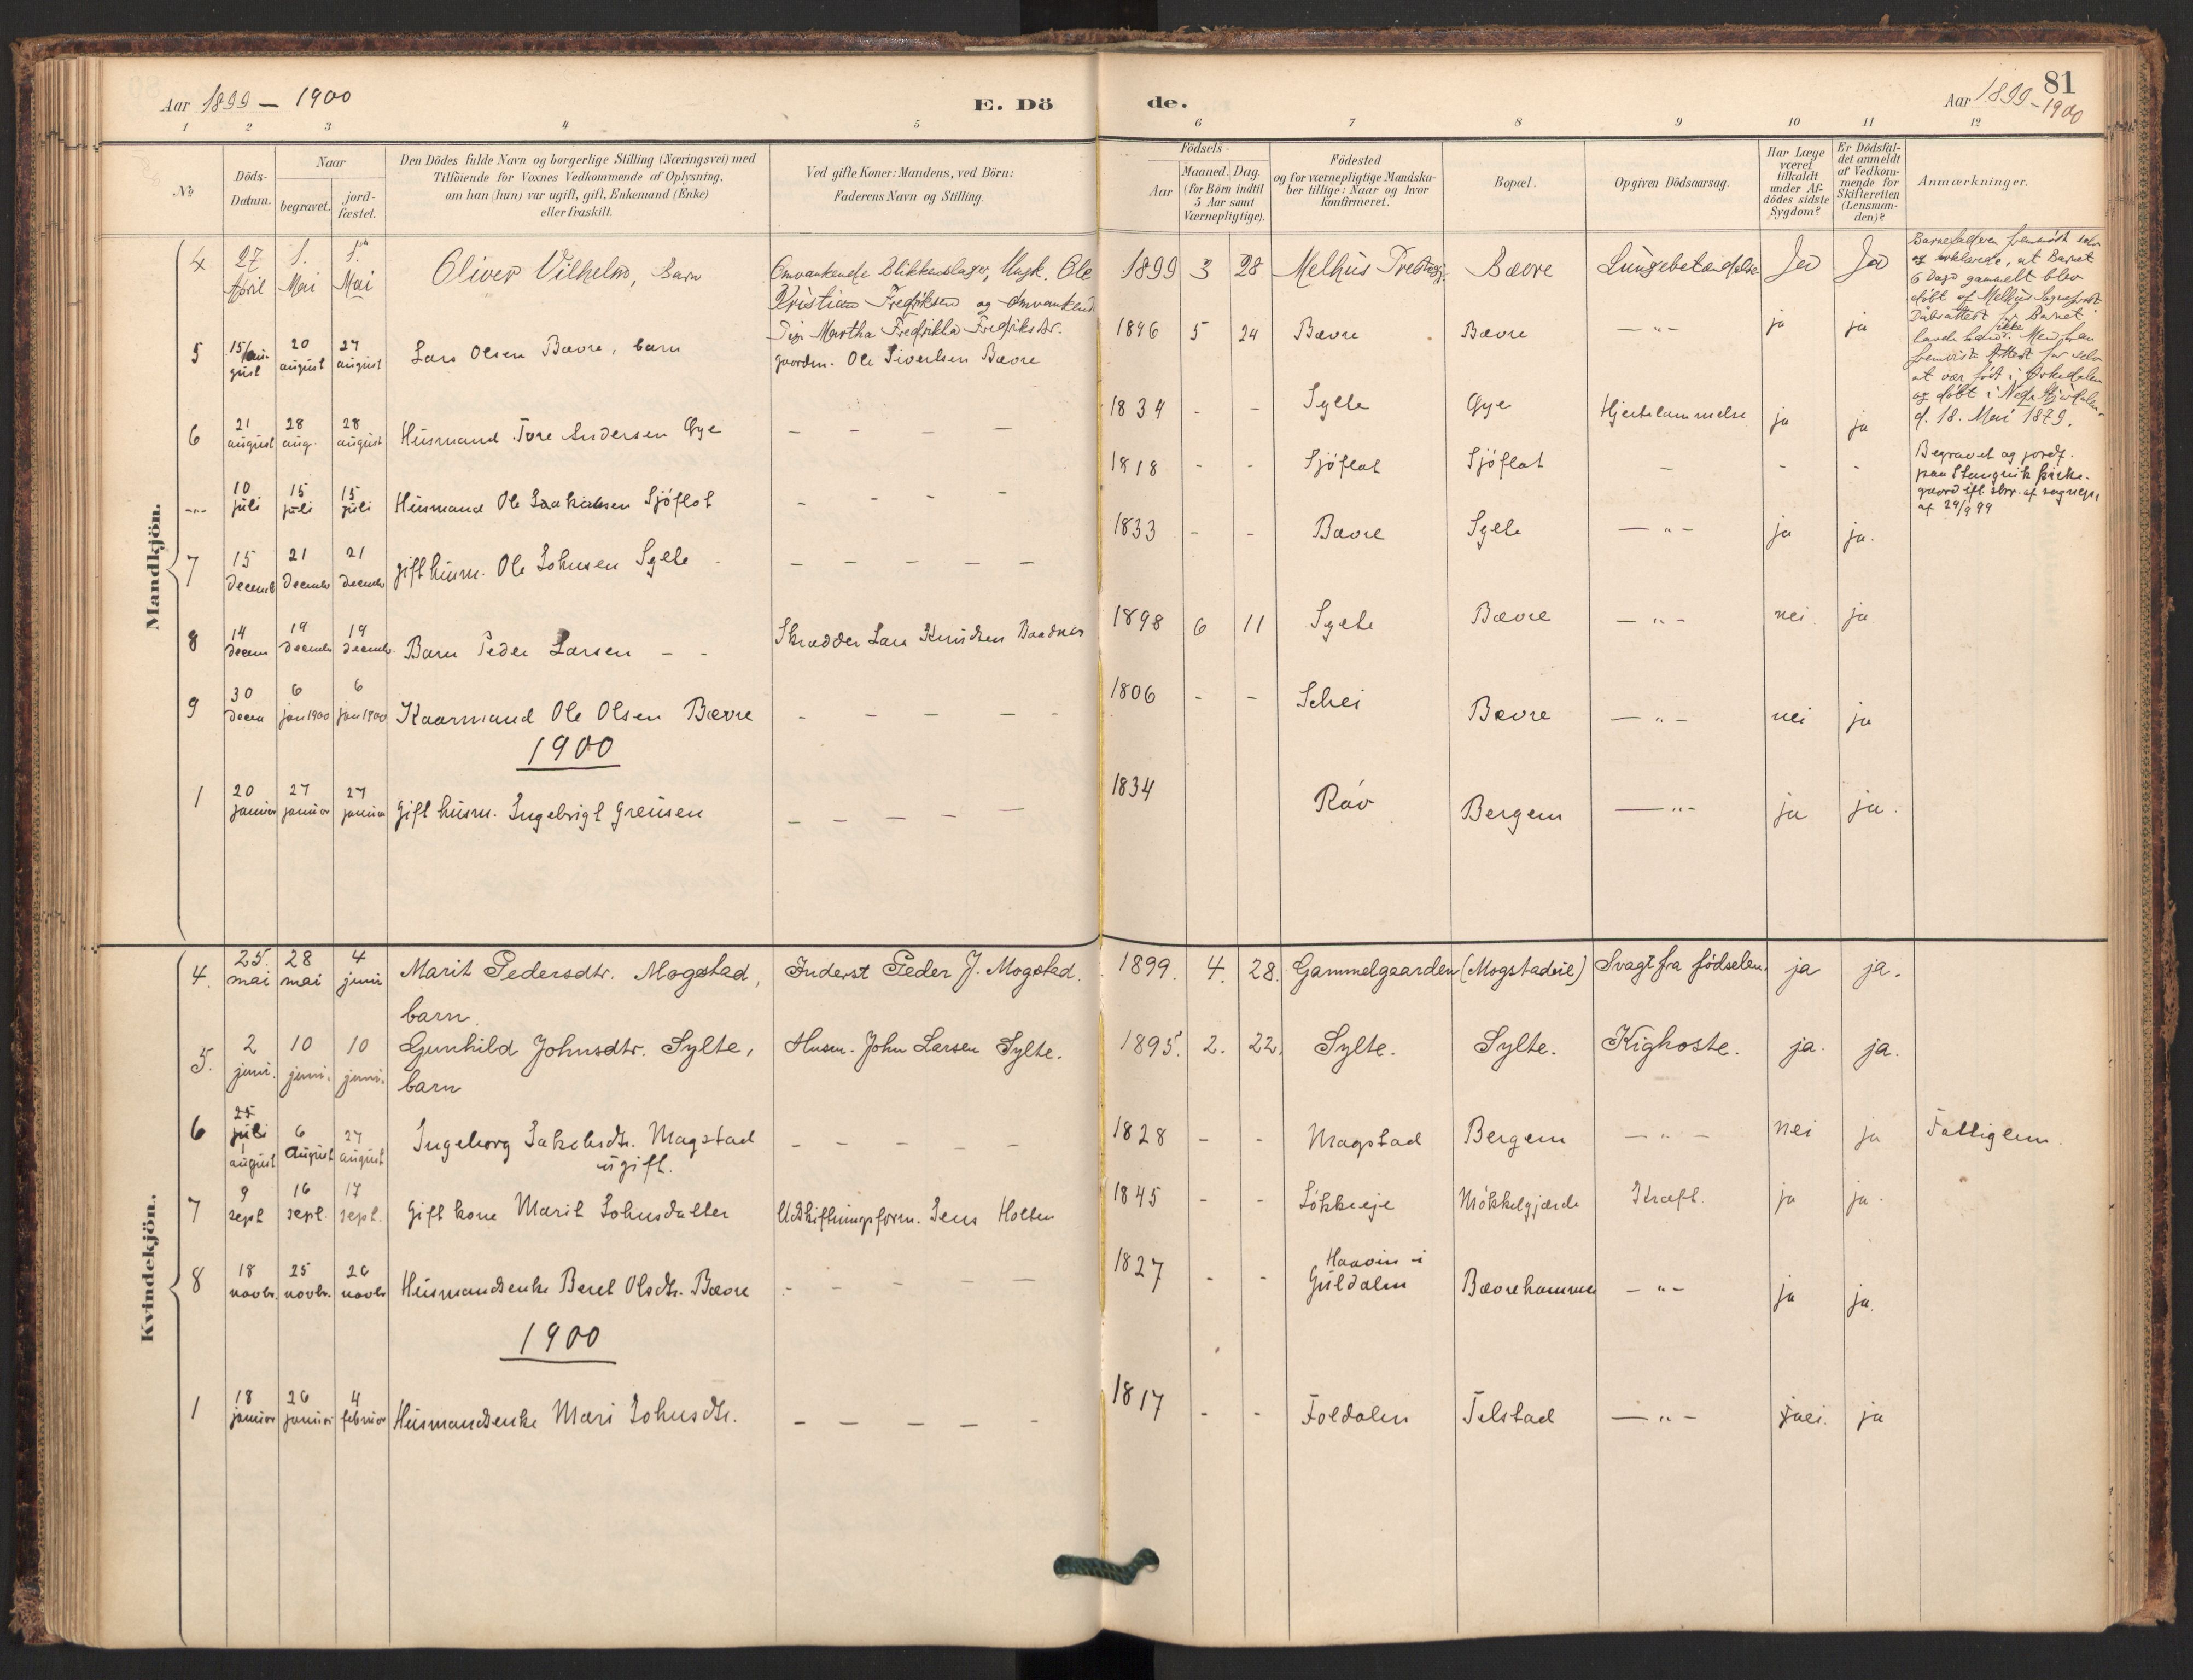 Aar 1899 – 1900
E. Dö de.
81
Aar 1899 - 1900
1 2 3 4 5 6 7 8 9 10 11 12
No
Döds-Datum.
Naar
begravet.
jord-fæstet.
Den Dödes fulde Navn og borgerlige Stilling (Næringsvei) med
Tilföiende for Voxnes Vedkommende af Oplysning,
om han (hun) var ugift, gift, Enkemand (Enke)
eller fraskilt.
Ved gifte Koner: Mandens, ved Börn:
Faderens Navn og Stilling.
Födsels-
Aar
Maaned. Dag.
(for Börn indtil
5 Aar samt
Værnepligtige).
Födested
og for værnepligtige Mandska-
ber tillige: Naar og hvor
konfirmeret.
Bopæl.
Opgiven Dödsaarsag.
Har Læge
været
tilkaldt
under Af-
dödes sidste
Sygdom?
Er Dödsfal-
det anmeldt
af Vedkom-
mende for
Skifteretten
(Lensman-
den)?
Anmærkninger.
Mandkjön.
4 27 April 1. Mai 1. Mai Oliver Vilhelm, Barn Omvankende Blikkenslager, Ungk. Ole Kristian Fredriksen og omvankende Pige Martha Fredrikka Fredriksdr. 1899 3 28 Melhus Prestegj. Bævre Lungebetændelse Ja Ja
Barnefaderen fremmødt selv
og erklærede, at Barnet
6 Dage gammelt blev
døbt af Melhus Sogneprest.
Daabsattest for Barnet
havde han ikke. Men han
fremviste Attest for selv
at være født i Orkedalen
og døbt i Nedre Stjørdalen
d. 18. Mai 1879.
5 15/august 20 august 27 august Lars Olsen Bævre, barn gaardm. Ole Sivertsen Bævre 1896 5 24 Bævre Bævre — " — ja ja
6 21 august 28 aug. 28 august Husmand Tore Andersen Gye — — — — 1834 - - Sylte Gye Hjertelammelse ja ja
— " — 10 juli 15 juli 15 juli Husmand Ole Isakksen Sjöflot - - - - 1818 - - Sjöflot Sjöflot - - -
Begravet og jordf.
paa Stangvik kirke-
gaard ifl skr. af sognepr.
af 29/9 99
7 15 decemb 21 decembr 21 decembr gift husm. Ole Johnsen Sylte — — — — — 1833 - - Bævre Sylte — " — ja ja.
8 14 decem 19 decembr 19 decembr. Barn Peder Larsen - - Skrædder Lars Knudsen Baadnes 1898 6 11 Sylte Bævre — " — nei. ja
9 30 decem 6 jan 1900 6 jan 1900 Kaarmand Ole Olsen Bævre - — — — - 1806 - - Schei Bævre — " — nei ja
1900
1 20 januar 27 januar 27 januar Gift husm. Ingebrigt Greiisen — — — — — 1834 Röv Bergem — " — ja ja.
Kvindekjön.
4. 25. mai 28 mai 4 juni Marit Pedersdtr. Mogstad, barn. Inderst Peder J. Mogstad. 1899. 4. 28. Gammelgaarden (Mogstadeie) Svagt fra födselen. ja ja.
5. 2 juni. 10 juni. 10 juni. Gunhild Johnsdtr. Sylte, barn Husm. John Larsen Sylte. 1895. 2. 22. Sylte. Sylte. Kighoste. ja. ja.
6 25 juli august 6 august 27 august Ingeborg Jakobsdtr. Magstad ugift. — — — — — 1828 - - Magstad Bergem — " — nei ja Fattiglem.
7 9 sept 16 sept. 17 sept. Gift kone Marit Johnsdatter Udskiftningsform. Jens Holten 1845 - - Løkkeeje Møkkelgjærde Kræft. ja ja.
8 18 novbr. 25 novbr. 26 novbr Husmandsenke Beret Olsdtr. Bævre - - - — — 1827 - - Haavin i Guldalen Bævrehammer — " — ja ja.
1900
1 18 januar 26 januar 4 februar Husmandsenke Mari Johnsdtr. — — — — - 1817 - - Foldalen Telstad — " — nei. ja